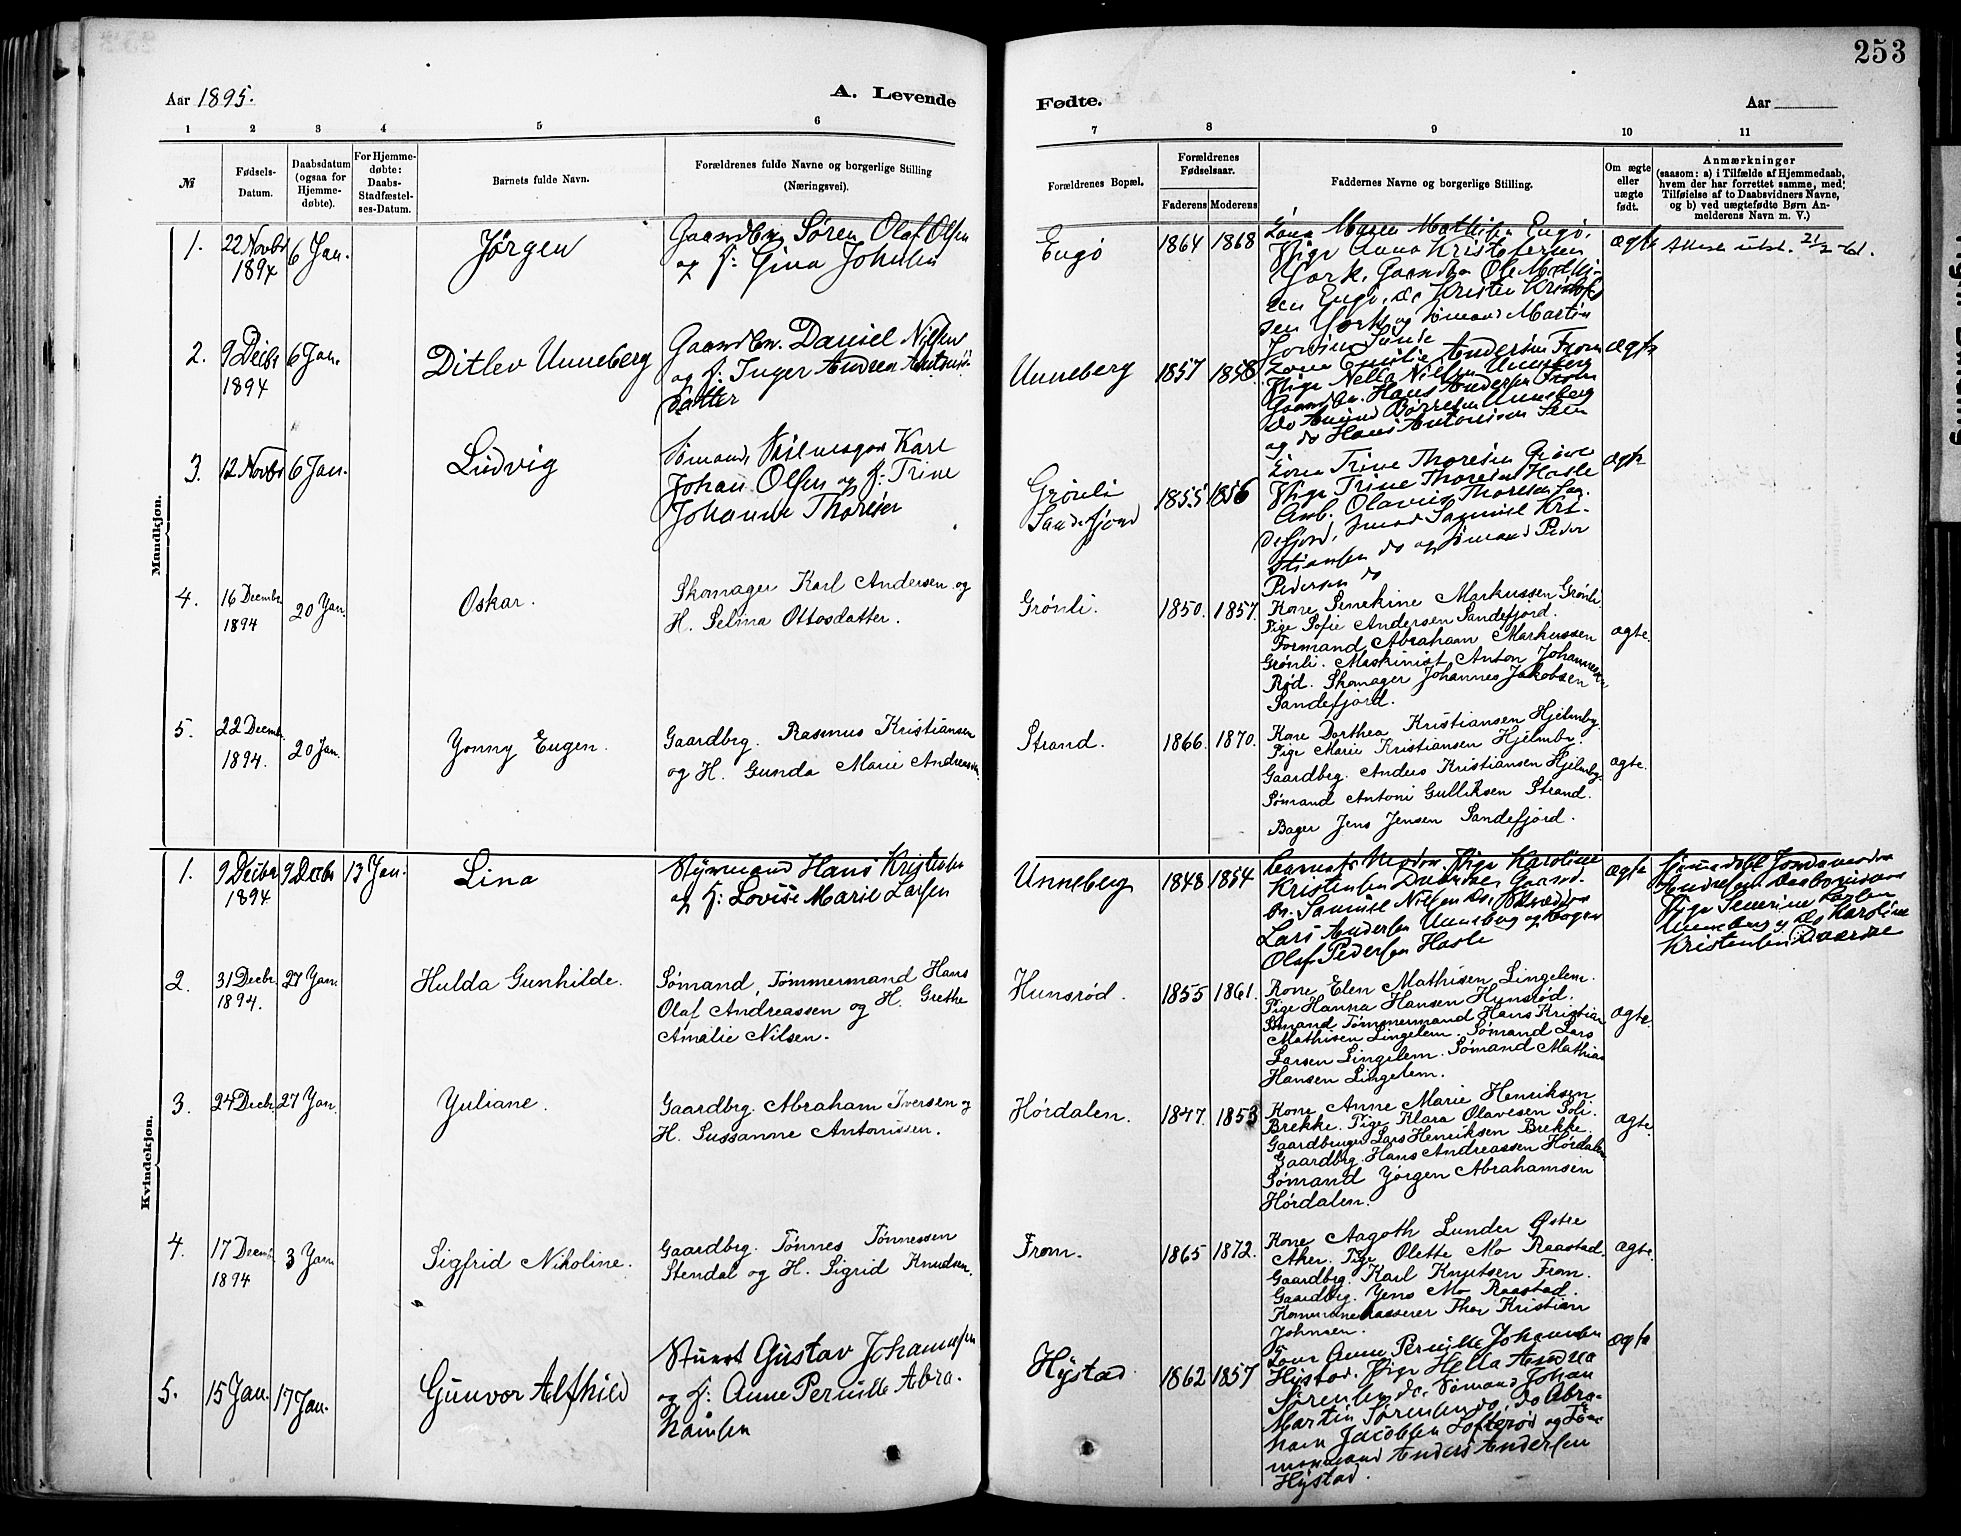 253
Aar 1895.
A. Levende
Fødte.
Aar
1 2 3 4 5 6 7 8 9 10 11
№
Fødsels-
Datum.
Daabsdatum
(ogsaa for
Hjemme-
døbte).
For Hjemme-
døbte:
Daabs-
Stadfæstel-
ses-Datum.
Barnets fulde Navn.
Forældrenes fulde Navne og borgerlige Stilling
(Næringsvei).
Forældrenes Bopæl.
Forældrenes
Fødselsaar.
Faderens Moderens
Faddernes Navne og borgerlige Stilling.
Om ægte
eller
uægte
født.
Anmærkninger
(saasom: a) i Tilfælde af Hjemmedaab,
hvem der har forrettet samme, med
Tilføielse af to Daabsvidners Navne,
og b) ved uægtefødte Børn An-
melderens Navn m. V.)
Mandkjøn.
1.
22 Novbr
1894
6 Jan.
Jørgen
Gaardbr Søren Olaf Olsen
og H: Gina Johnsen
Engø
1864 1868
Kone Maren Mathisen Engø,
Pige Anna Kristofersen
York, Gaardbr Ole Mathi-
sen Engø, do Kristen Kristof
sen York og Sømand Martin
ægte
Attest utst. 21/2-61.
2.
9 Decbr
1894
6 Jan.
Ditlev Unneberg
Gaardbr. Daniel Nilsen
og H: Inger Andrea Antonis-
datter
Unneberg
1857 1858
Kone Emilie Andersen From
Pige Nella Nilsen Unneberg
Gaardbr. Hans Andersen From
do Amund Børresen Unneberg
og do Hans Antonisen
ægte
3.
12 Novbr
6 Jan.
Ludvig
Sømand, Seilmager Karl
Johan Olsen og H: Trine
Johanne Thoresen
Grønli
Sandefjord
1855 1856
Kone Trine Thoresen
Pige Trine Thoresen Hasle
Arb. Olavus Thoresen San-
defjord, Sømand Samuel Kri-
stiansen do og Sømand Peder
Pedersen do
ægte
4.
16 Decembr
1894
20 Jan.
Oskar.
Skomager Karl Andersen og
H. Selma Ottosdatter.
Grønli.
1850. 1857.
Kone Senekine Markussen Grønli.
Pige Sofie Andersen Sandefjord.
Formand Abraham Markussen
Grønli. Maskinist Anton Johannesen
Rød. Skomager Johannes Jakobsen
Sandefjord.
ægte.
5.
22 Decembr
1894.
20 Jan.
Yonny Eugen.
Gaardbrg. Rasmus Kristiansen
og H. Gunda Marie Andreasen.
Strand.
1866. 1870.
Kone Dorthea Kristiansen Hjelmby.
Pige Marie Kristiansen Hjelmby.
Gaardbrg. Anders Kristiansen Hjelmby.
Sømand Antoni Gulliksen Strand.
Bager Jens Jensen Sandefjord.
ægte.
Kvindekjøn.
1.
9 Decbr
1894
9 Decbr
13 Jan.
Lina
Styrmand Hans Kristensen
og H: Lovise Marie Larsen
Unneberg
1848 1854
Barnets Moder. Pige Karoline
Kristensen Gaard-
br. Samuel Nilsen do,
Lars Andersen Unneberg og
Olaf Pedersen Hasle
ægte
Hjemmedøbt Jordemoder
Pige Severine Larsen
Unneberg og do Karoline
Kristensen
2.
31 Decbr
1894.
27 Jan.
Hulda Gunhilde.
Sømand, Tømmermand Hans
Olaf Andreassen og H. Grethe
Amalie Nilsen.
Hunsrød.
1855 1861.
Kone Elen Mathisen Lingelem.
Pige Hanna Hansen Hunsrød.
Sømand Tømmermand Hans Kristian
Mathisen Lingelem. Sømand Lars
Larsen Lingelem. Sømand Mathias
Hansen Lingelem.
ægte.
3.
24 Decbr
27 Jan.
Yuliane.
Gaardbrg. Abraham Iversen og
H. Sussanne Antonissen.
Hørdalen.
1847. 1853
Kone Anne Marie Henriksen
Brekke. Pige Klara Olavesen Soli.
Gaardbruger Lars Henriksen Brekke.
Gaardbrg. Hans Andreassen Hørdalen
Sømand Yørgen Abrahamsen
Hørdalen.
ægte.
4.
17 Decembr
1894
3 Jan.
Sigfrid Nikoline.
Gaardbrg. Tønnes Tønnessen
Stendal og H. Sigrid Knudsen.
From.
1865 1872.
Kone Aagoth Lunder Østre
Aker. Pige Olette Mo Raastad.
Gaardbrg. Karl Knutsen From.
Gaardbrg. Yens Mo Raastad.
Kommunekasserer Thor Kristian
Johnsen.
ægte.
5.
15 Jan.
17 Jan.
Gunvor Alfhild
Stuert Gustav Johannesen
og H: Anne Pernille Abra-
hamsen
Hystad
1862 1857
Kone Anne Pernille Johannesen
Hystad. Pige Hella Andrea
Sørensen do, Sømand Johan
Martin Sørensen do, do Abra-
ham Jacobsen Lofterød og Tøm-
mermand Anders Andersen
Hystad.
ægte